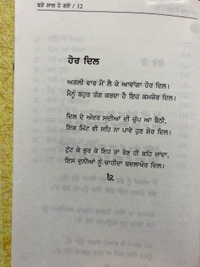 ਬੜੇ ਸਾਲ ਹੋ ਗਏ / 12
ਹੋਰ ਦਿਲ
ਅਗਲੀ ਵਾਰ ਮੈਂ ਲੈ ਕੇ ਆਵਾਂਗਾ ਹੋਰ ਦਿਲ।
ਮੈਨੂੰ ਬਹੁਤ ਤੰਗ ਕਰਦਾ ਹੈ ਇਹ ਕਮਜ਼ੋਰ ਦਿਲ।
ਦਿਲ ਦੇ ਅੰਦਰ ਸਦੀਆਂ ਦੀ ਚੁੱਪ ਆ ਬੈਠੀ,
ਇਕ ਮਿੰਟ ਵੀ ਸਹਿ ਨਾ ਪਾਵੇ ਹੁਣ ਸ਼ੋਰ ਦਿਲ।
ਟੁੱਟ ਕੇ ਭੁਰ ਕੇ ਇਹ ਤਾਂ ਰੋਣ ਹੀ ਬਹਿ ਜਾਂਦਾ,
ਇਸ ਦੁਨੀਆਂ ਨੂੰ ਚਾਹੀਦਾ ਬਦਲਾਖੋਰ ਦਿਲ।